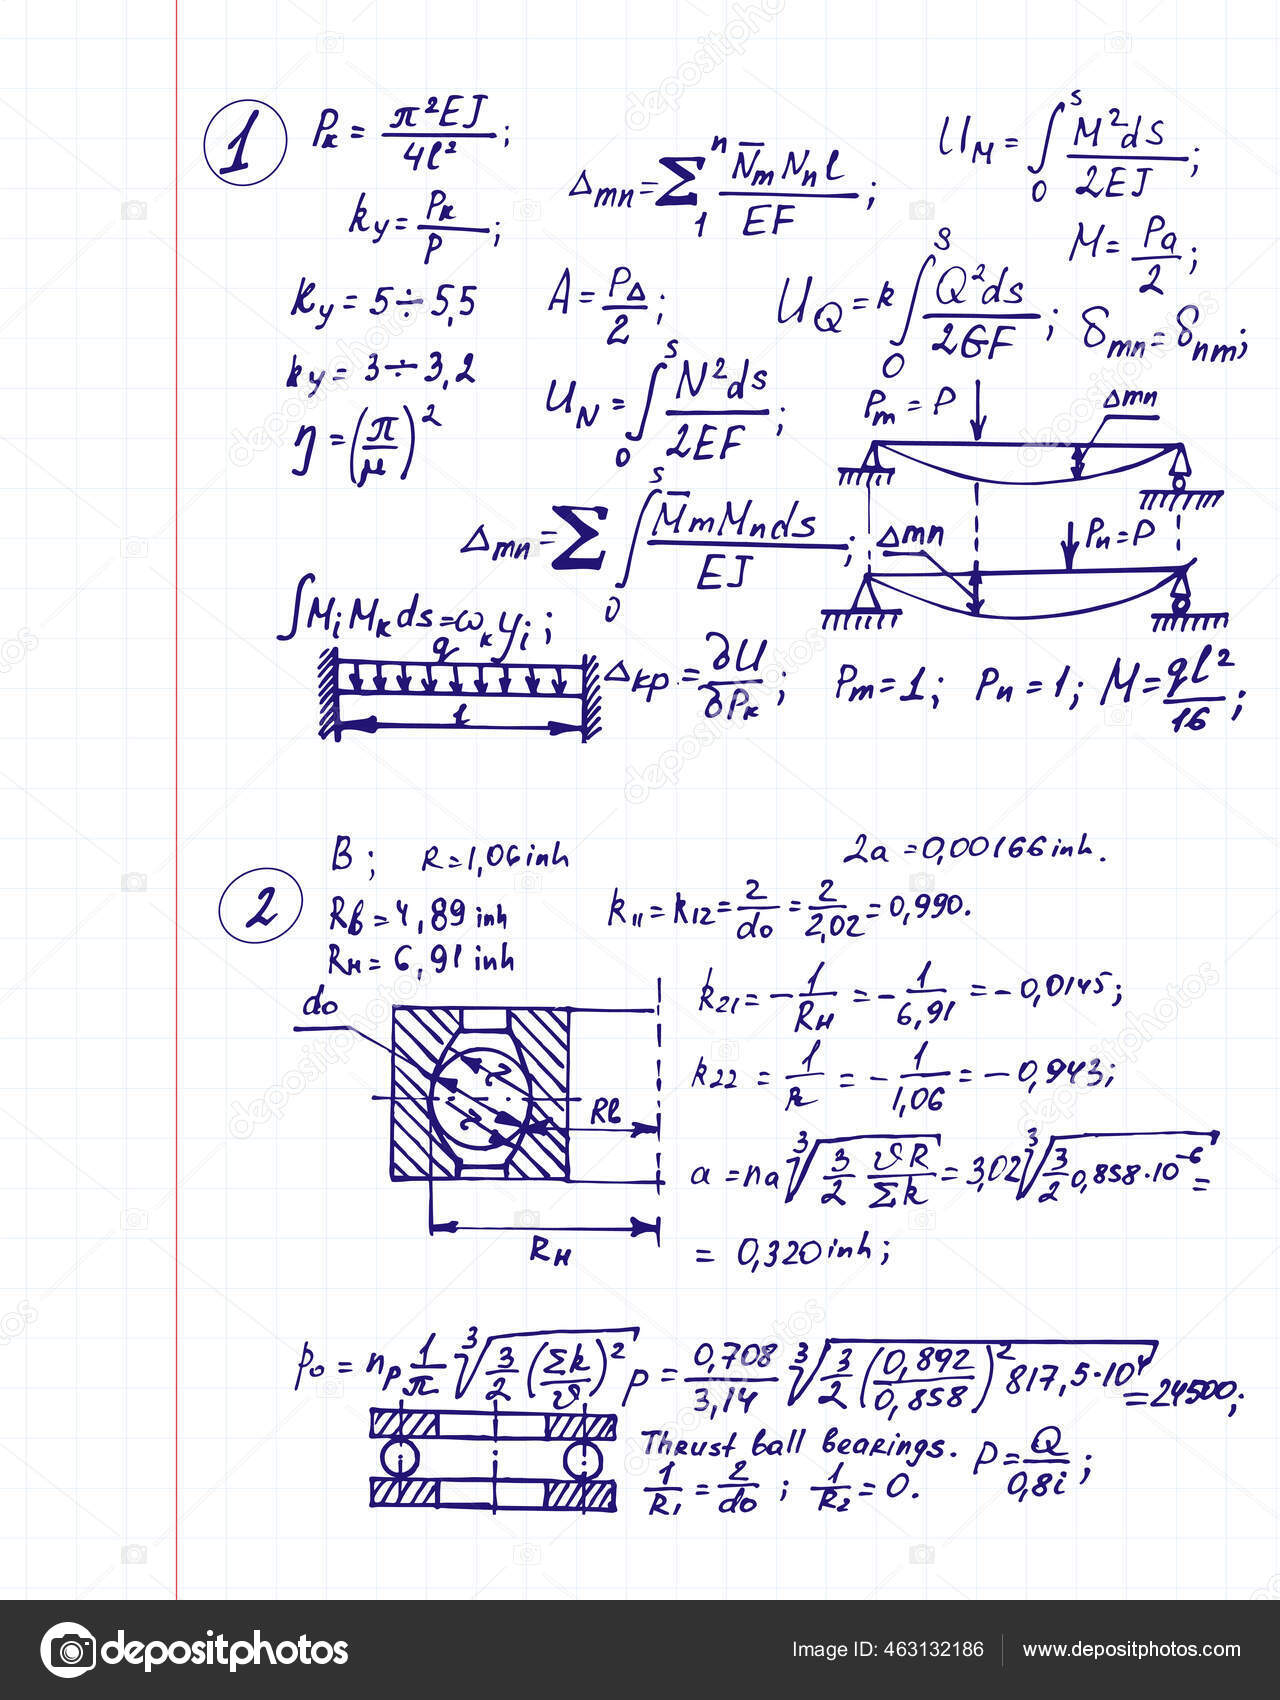 1
Pк = π²EJ / 4l² ;
kу = Pк / P ;
kу = 5 ÷ 5,5
kу = 3 ÷ 3,2
η = (π/μ)²
Δmn = Σ₁ⁿ N̅m Nn l / EF ;
A = PΔ / 2 ;
U_N = ∫₀ˢ N²ds / 2EF ;
U_M = ∫₀ˢ M²dS / 2EJ ;
M = Pa / 2 ;
U_Q = k ∫₀ˢ Q²ds / 2GF ;
δmn = δnm ;
Pm = P
Δmn
Δmn = Σ ∫₀ˢ M̅m Mn ds / EJ ;
Δmn
Pn = P
∫Mi Mк ds = ωк yi ;
q
l
Δкр = ∂U / ∂Pк ;
Pm = 1 ; Pn = 1 ; M = ql² / 16 ;
2
B ; R = 1,06 inh
2a = 0,00166 inh.
Rв = 4,89 inh
Rн = 6,91 inh
k11 = k12 = 2/do = 2/2,02 = 0,990.
do
k21 = − 1/Rн = − 1/6,91 = − 0,0145 ;
k22 = 1/R = − 1/1,06 = − 0,943 ;
r
r
Rв
Rн
a = na ∛(3/2 ϑR/Σk) = 3,02 ∛(3/2 0,858·10⁻⁶) =
= 0,320 inh ;
po = np 1/π ∛(3/2 (Σk/ϑ)² P = 0,708/3,14 ∛(3/2 (0,892/0,858)² 817,5·10⁴) = 24500 ;
Thrust ball bearings. P = Q / 0,8i ;
1/R1 = 2/do ; 1/R2 = 0.
depositphotos
Image ID: 463132186
www.depositphotos.com